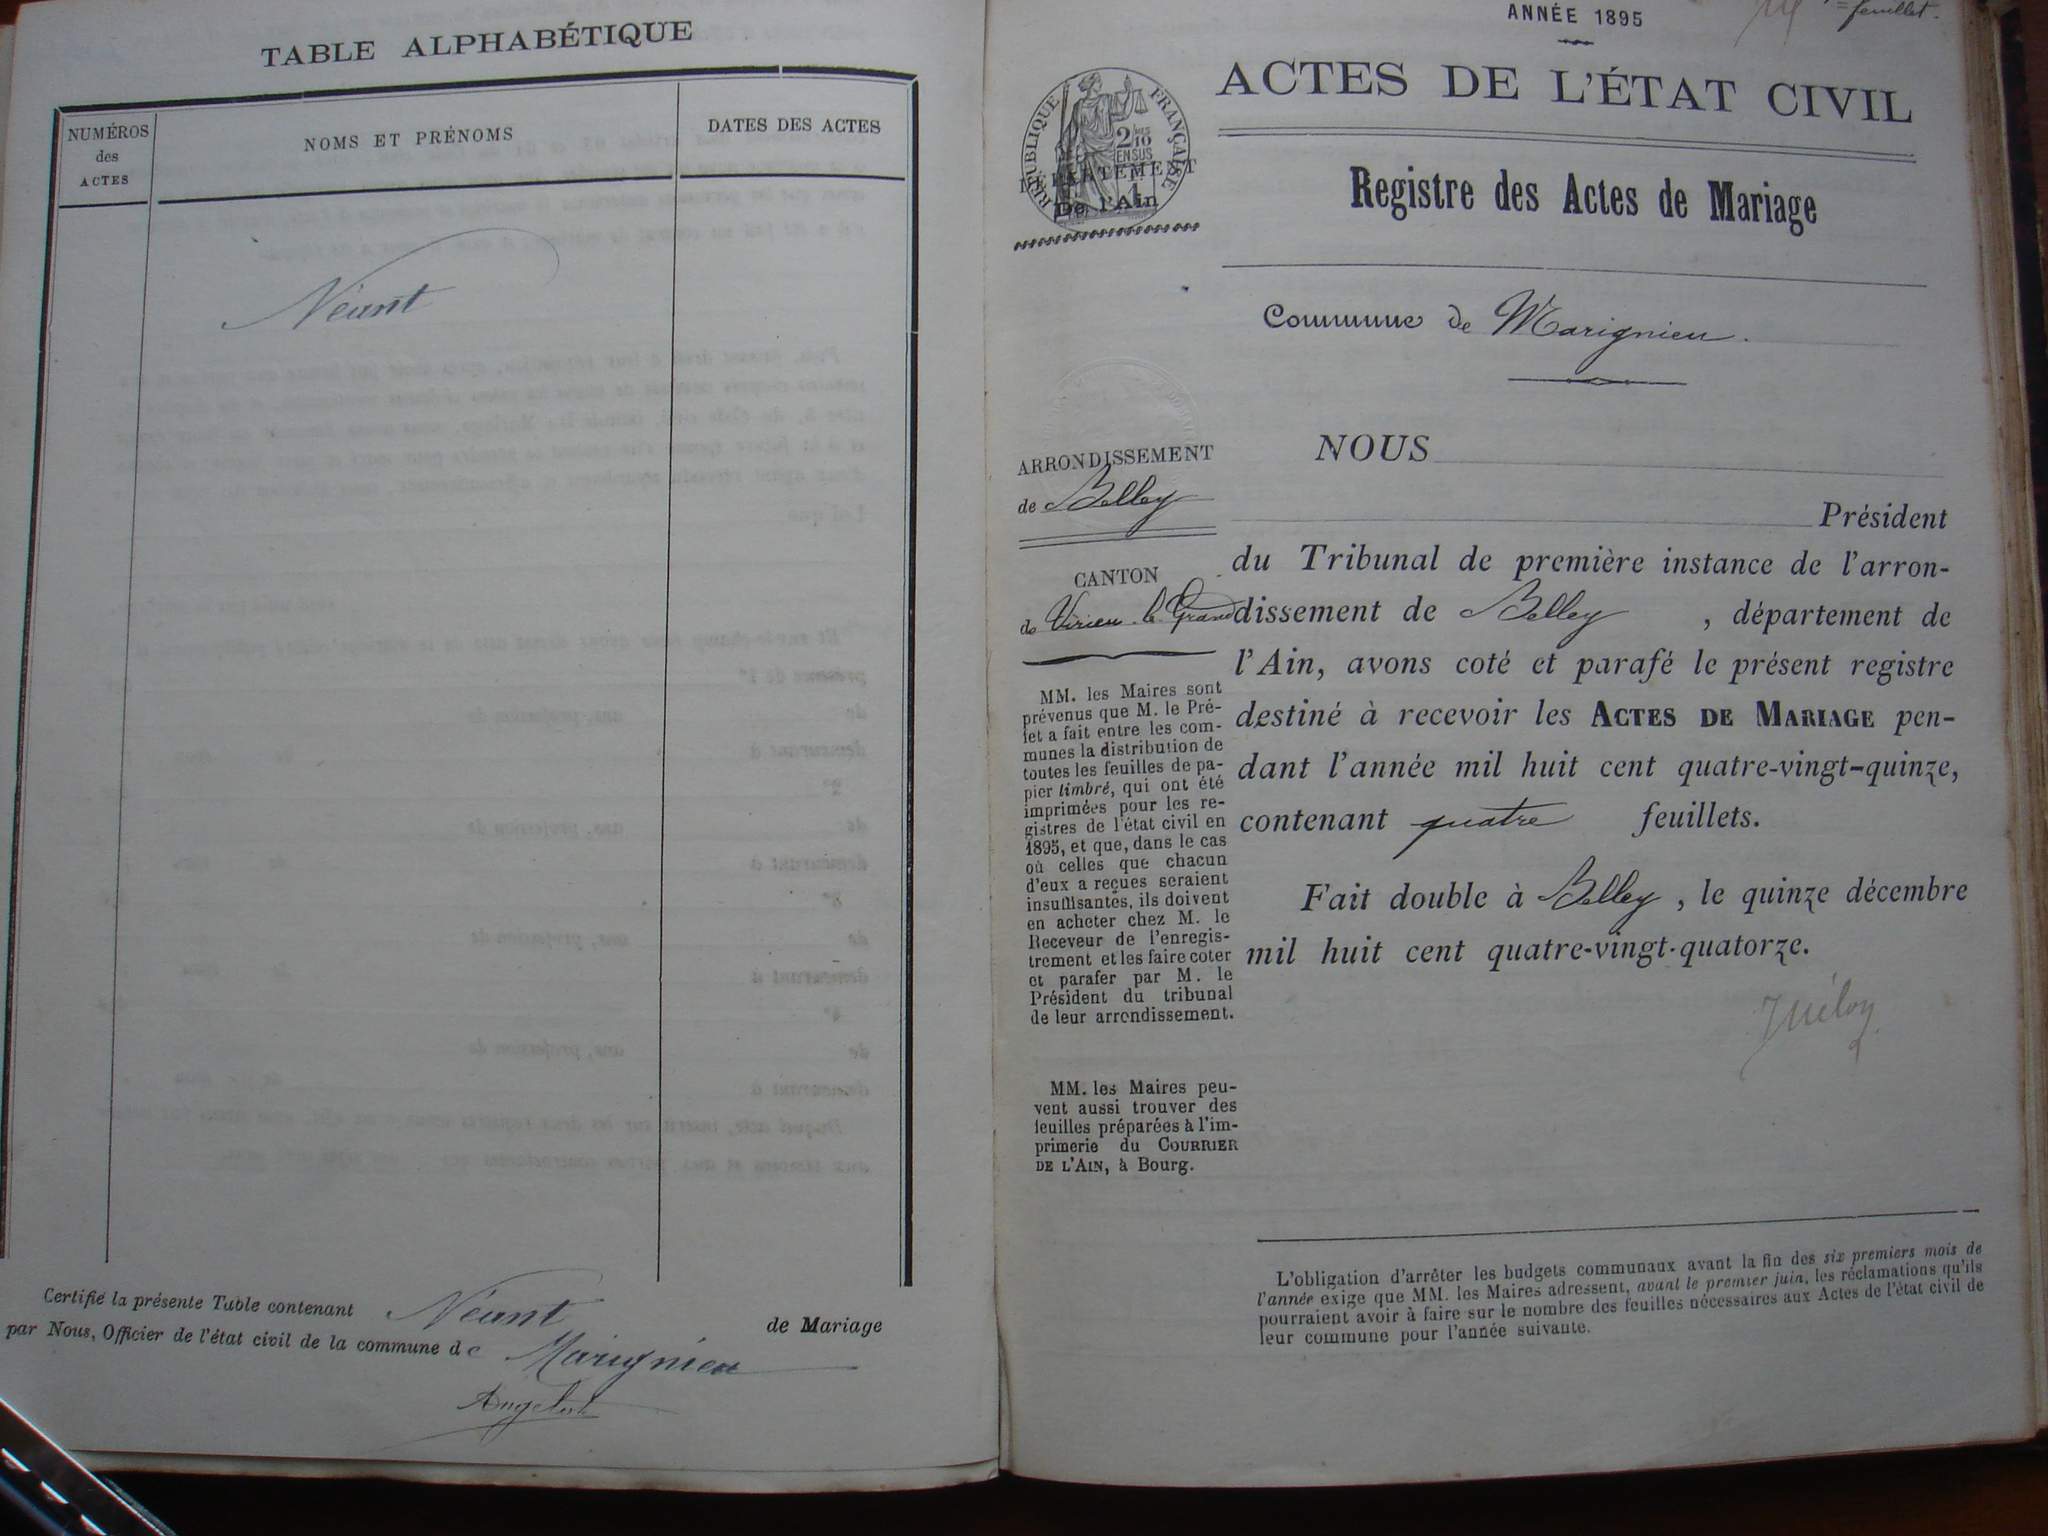 TABLE ALPHABÉTIQUE
NUMÉROS
des
ACTES
NOMS ET PRÉNOMS
DATES DES ACTES
Néant
Certifié la présente Table contenant Néant de Mariage
par Nous, Officier de l'état civil de la commune de Marignieu
ANNÉE 1895
feuillet.
RÉPUBLIQUE FRANÇAISE
2/10
EN SUS
DÉPARTEMENT
De l'Ain
ACTES DE L'ÉTAT CIVIL
Registre des Actes de Mariage
Commune de Marignieu.
ARRONDISSEMENT
de Belley
CANTON
de Virieu-le-Grand
MM. les Maires sont
prévenus que M. le Pré-
fet a fait entre les com-
munes la distribution de
toutes les feuilles de pa-
pier timbré, qui ont été
imprimées pour les re-
gistres de l'état civil en
1895, et que, dans le cas
où celles que chacun
d'eux a reçues seraient
insuffisantes, ils doivent
en acheter chez M. le
Receveur de l'enregis-
trement et les faire coter
et parafer par M. le
Président du tribunal
de leur arrondissement.
MM. les Maires peu-
vent aussi trouver des
feuilles préparées à l'im-
primerie du COURRIER
DE L'AIN, à Bourg.
NOUS
Président
du Tribunal de première instance de l'arron-
dissement de Belley , département de
l'Ain, avons coté et parafé le présent registre
destiné à recevoir les ACTES DE MARIAGE pen-
dant l'année mil huit cent quatre-vingt-quinze,
contenant quatre feuillets.
Fait double à Belley, le quinze décembre
mil huit cent quatre-vingt-quatorze.
L'obligation d'arrêter les budgets communaux avant la fin des six premiers mois de
l'année exige que MM. les Maires adressent, avant le premier juin, les réclamations qu'ils
pourraient avoir à faire sur le nombre des feuilles nécessaires aux Actes de l'état civil de
leur commune pour l'année suivante.